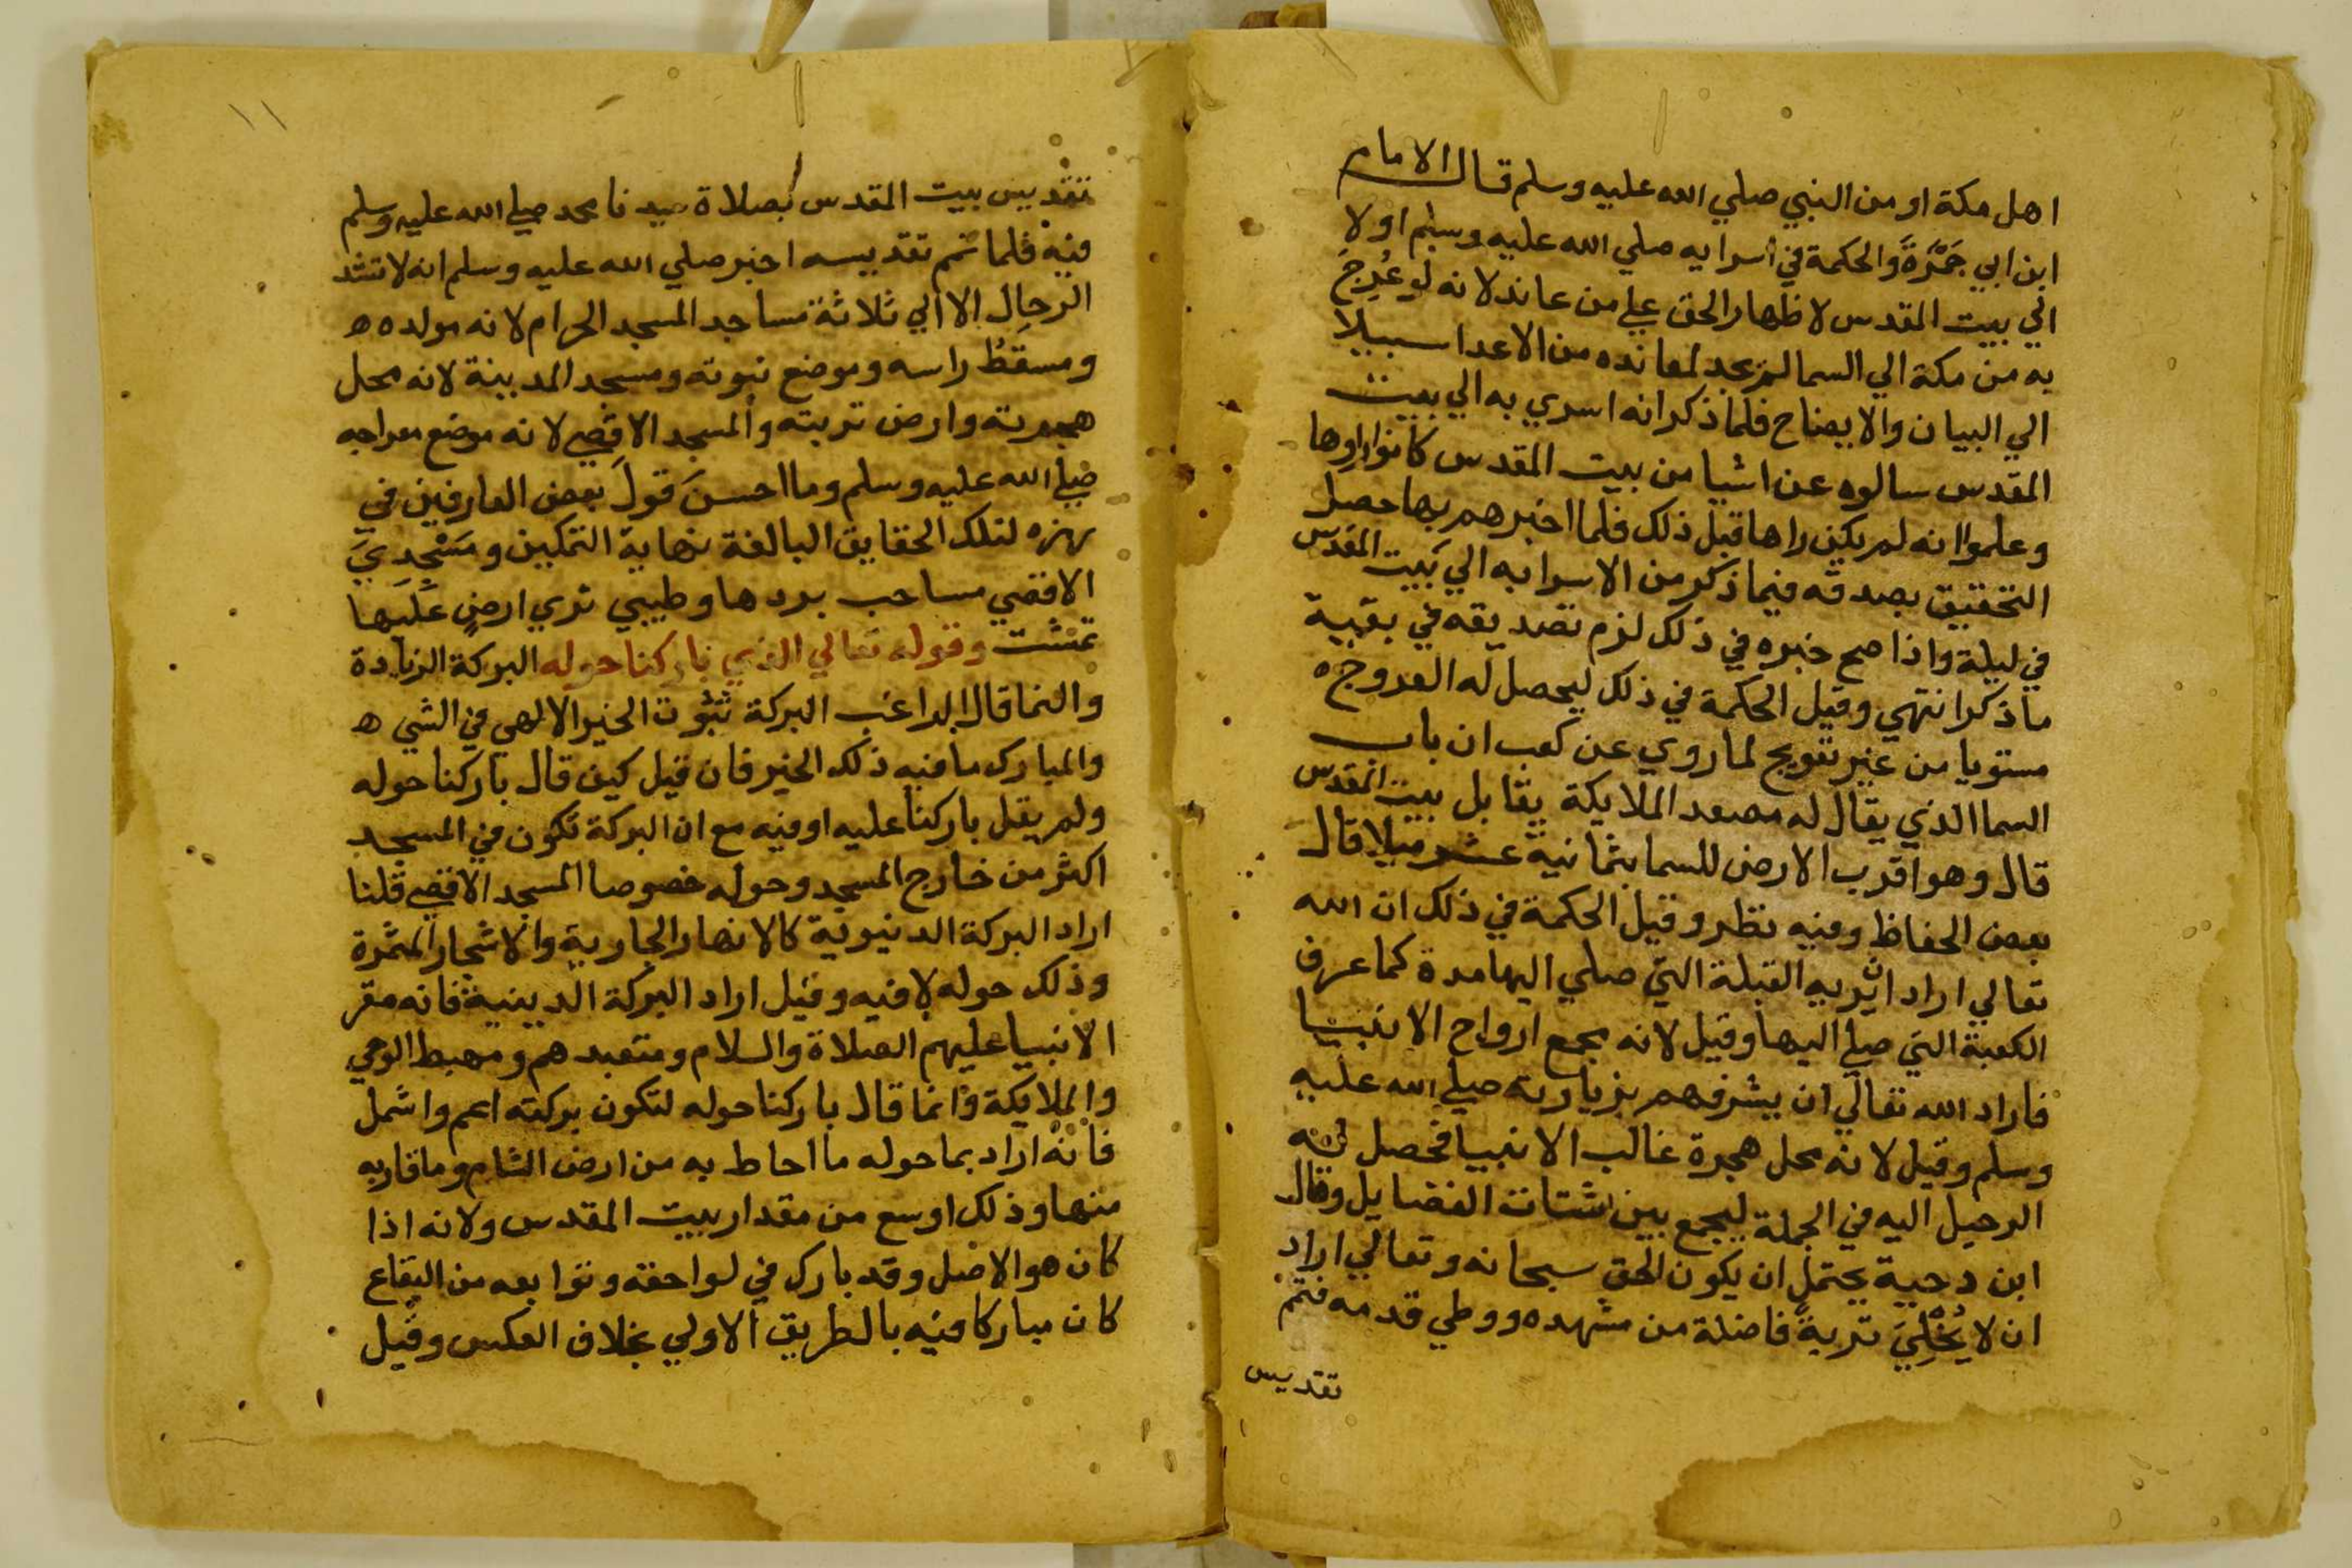 اهل مكة او من النبي صلي الله عليه وسلم قال الامام
ابن ابي جَمْرَةَ والحكمة في اسرايه صلي الله عليه وسلم اولا
الي بيت المقدس لاظهار الحق علي من عاند لانه لو عُرِجَ
به من مكة الي السما لم يجد لمعانده من الاعدا سبيلا
الي البيان والايضاح فلما ذكر انه اسري به الي بيت
المقدس سالوه عن اشيا من بيت المقدس كانوا راوها
وعلموا انه لم يكن راها قبل ذلك فلما اخبرهم بها حصل
التحقيق بصدقه فيما ذكر من الاسرا به الي بيت المقدس
في ليلة واذا صح خبره في ذلك لزم تصديقه في بقية
ما ذكر انتهي وقيل الحكمة في ذلك ليحصل له العروج ه
مستويا من غير تعويج لما روي عن كعب ان باب
السما الذي يقال له مصعد الملايكة يقابل بيت المقدس
قال وهو اقرب الارض للسما بثمانية عشر ميلا قال
بعض الحفاظ وفيه نظر وقيل الحكمة في ذلك ان الله
تعالي اراد ان يريه القبلة التي صلي اليها مدة كما عرف
الكعبة التي صلي اليها وقيل لانه مجمع ارواح الانبيا
فاراد الله تعالي ان يشرفهم بزيارته صلي الله عليه
وسلم وقيل لانه محل هجرة غالب الانبيا فحصل له
الرحيل اليه في الجملة ليجمع بين اشتات الفضايل وقال
ابن دحية يحتمل ان يكون الحق سبحانه وتعالي اراد
ان لا يُخْلِيَ تربةً فاضلة من مشهده ووطي قدمه فتم
تقديس
١١
تقديس بيت المقدس بصلاة سيدنا محمد صلي الله عليه وسلم
فيه فلما تم تقديسه اخبر صلي الله عليه وسلم انه لا تشد
الرحال الا الي ثلاثة مساجد المسجد الحرام لانه مولده ه
ومسقط راسه وموضع نبوته ومسجد المدينة لانه محل
هجرته وارض تربته والمسجد الاقصي لانه موضع معراجه
صلي الله عليه وسلم وما احسن قول بعض العارفين في
لتلك الحقايق البالغة نهاية التمكين ومَسْجِدِيَ
الاقصي مساحب بردها وطيبي ثري ارضٍ عليها
تمشت وقوله تعالي الذي باركنا حوله البركة الزيادة
والنما قال الراغب البركة ثبوت الخير الالهي في الشي ه
والمبارك ما فيه ذلك الخير فان قيل كيف قال باركنا حوله
ولم يقل باركنا عليه او فيه مع ان البركة تكون في المسجد
اكثر من خارج المسجد وحوله خصوصا المسجد الاقصي قلنا
اراد البركة الدنيوية كالانهار الجارية والاشجار المثمرة
وذلك حوله لا فيه وقيل اراد البركة الدينية فانه مقر
الانبيا عليهم الصلاة والسلام ومتعبدهم ومهبط الوحي
والملايكة وانما قال باركنا حوله لتكون بركته اعم واشمل
فانه اراد بما حوله ما احاط به من ارض الشام وما قاربه
منها وذلك اوسع من مقدار بيت المقدس ولانه اذا
كان هو الاصل وقد بارك في لواحقه وتوابعه من البقاع
كان مباركا فيه بالطريق الاولي بخلاف العكس وقيل